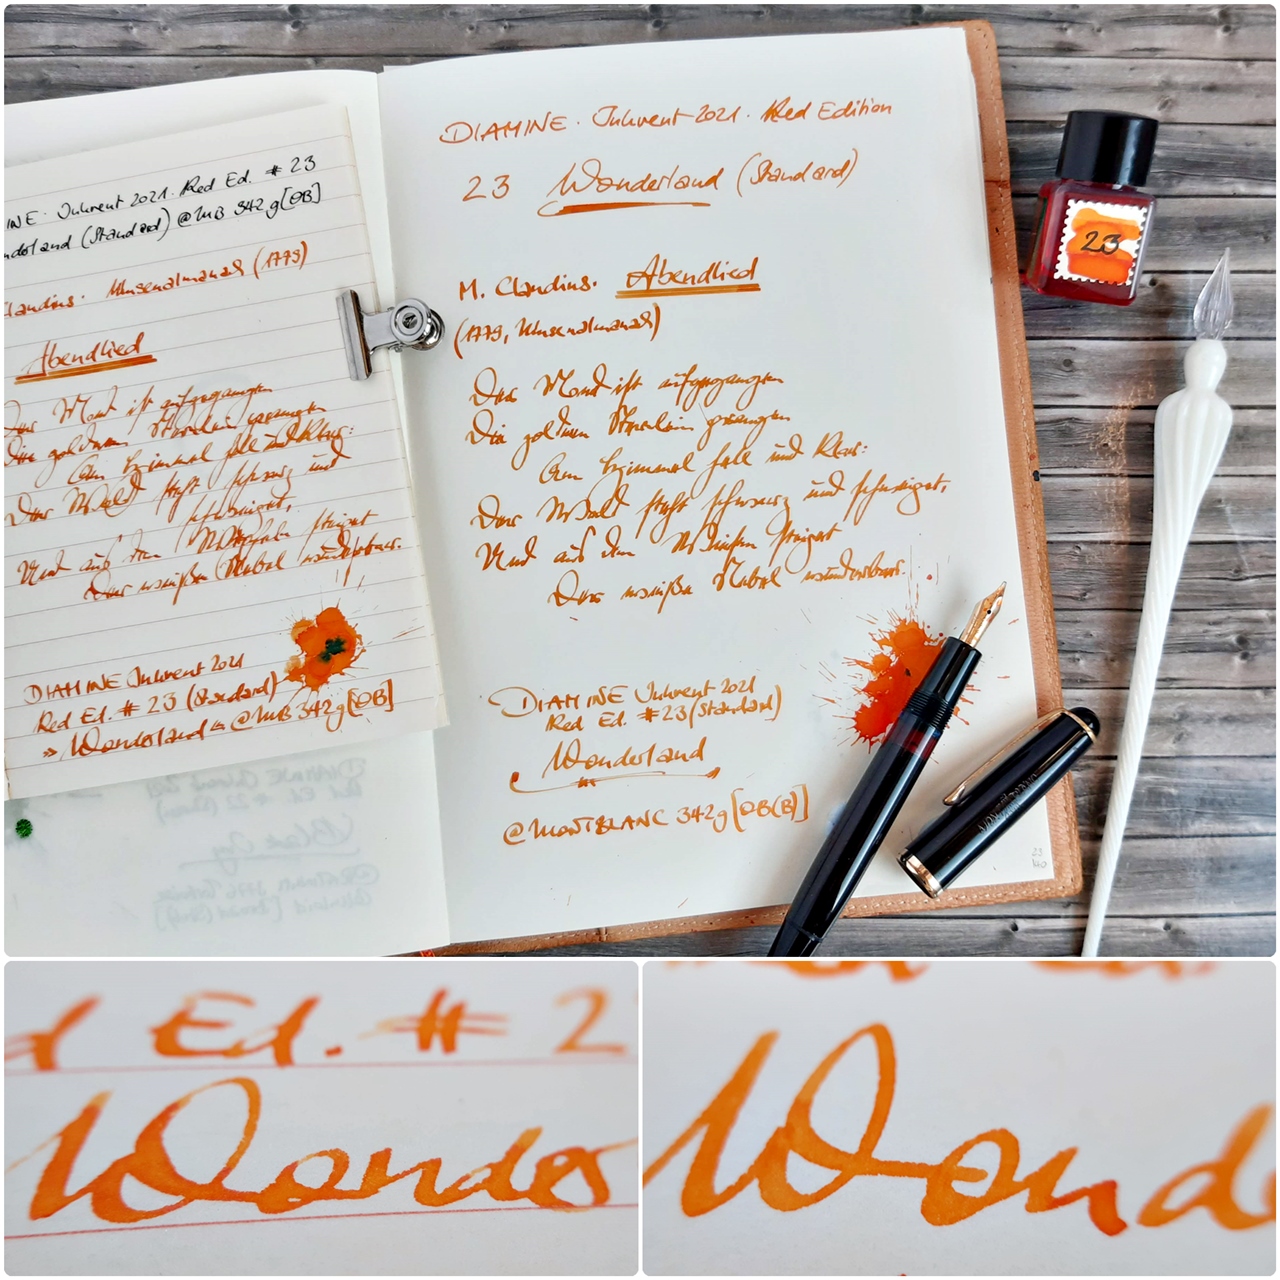 INE · Inkvent 2021 · Red Ed. # 23
nderland (Standard) @MB 342g [OB]
Claudius · Musenalmanach (1779)
Abendlied
Der Mond ist aufgegangen
Die goldnen Sternlein prangen
Am Himmel hell und klar:
Der Wald steht schwarz und
schweiget,
Und aus den Wiesen steiget
Der weiße Nebel wunderbar.
DIAMINE Inkvent 2021
Red Ed. # 23 (Standard)
» Wonderland « @MB 342g [OB]
DIAMINE · Inkvent 2021 · Red Edition
23 Wonderland (Standard)
M. Claudius · Abendlied
(1779, Musenalmanach)
Der Mond ist aufgegangen
Die goldnen Sternlein prangen
Am Himmel hell und klar:
Der Wald steht schwarz und schweiget,
Und aus den Wiesen steiget
Der weiße Nebel wunderbar.
DIAMINE Inkvent 2021
Red Ed. #23 (Standard)
Wonderland
@MONTBLANC 342g [OB(B)]
23
23
d Ed. # 2
Wonder
Wonde